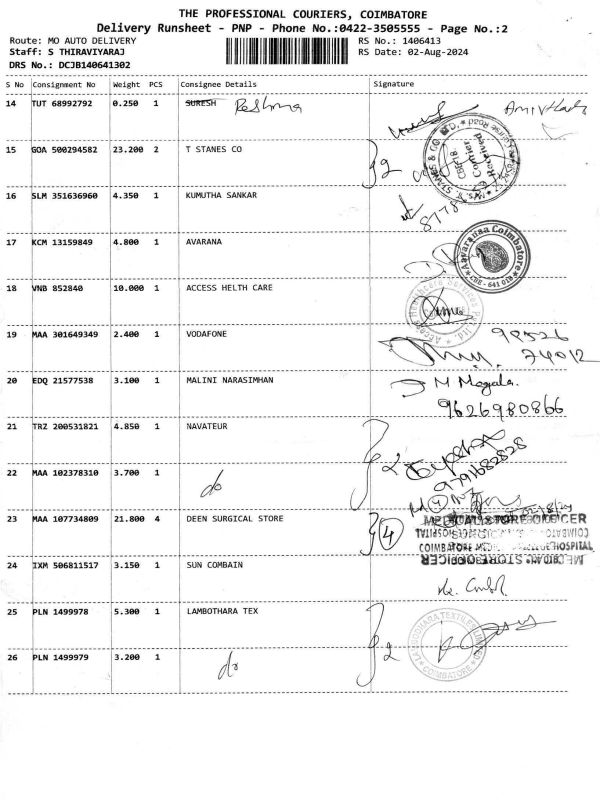 THE PROFESSIONAL COURIERS, COIMBATORE
Delivery Runsheet - PNP - Phone No.:0422-3505555 - Page No.:2
Route: MO AUTO DELIVERY RS No.: 1406413
Staff: S THIRAVIYARAJ RS Date: 02-Aug-2024
DRS No.: DCJB140641302
S No Consignment No Weight PCS Consignee Details Signature
14 TUT 68992792 0.250 1 SURESH Reshma
15 GOA 500294582 23.200 2 T STANES CO 2
16 SLM 351636960 4.350 1 KUMUTHA SANKAR
8778
17 KCM 13159849 4.800 1 AVARANA
Aavaranaa Coimbatore
CBE - 641 018
18 VNB 852840 10.000 1 ACCESS HELTH CARE
Access Healthcare Services Pvt. Ltd.
19 MAA 301649349 2.400 1 VODAFONE
74012
20 EDQ 21577538 3.100 1 MALINI NARASIMHAN M Mogala.
9626980866
21 TRZ 200531821 4.850 1 NAVATEUR 2
9791682828
22 MAA 102378310 3.700 1 do
23 MAA 107734809 21.800 4 DEEN SURGICAL STORE 4
MEDICAL STORE OFFICER
COIMBATORE HOSPITAL
24 IXM 506811517 3.150 1 SUN COMBAIN
25 PLN 1499978 5.300 1 LAMBOTHARA TEX
COIMBATORE
26 PLN 1499979 3.200 1 do 2